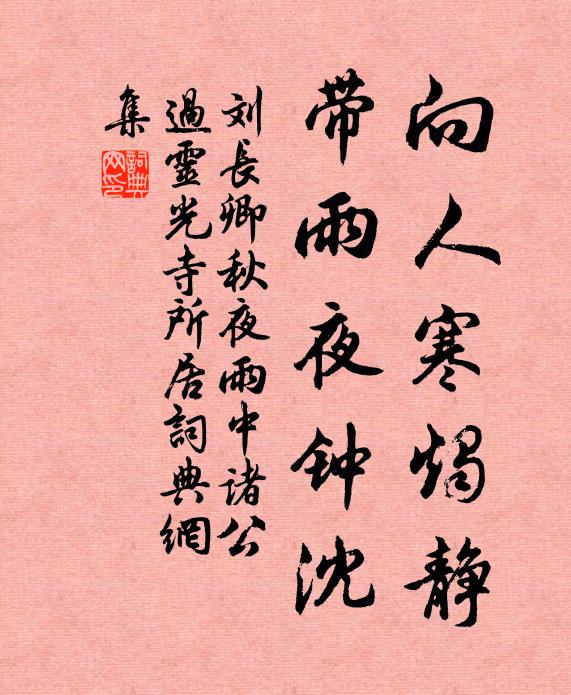 向人寒烛静
带雨夜钟沈
刘長卿秋夜雨中诸公
過靈光寺所居詞典網
集
詞典网印